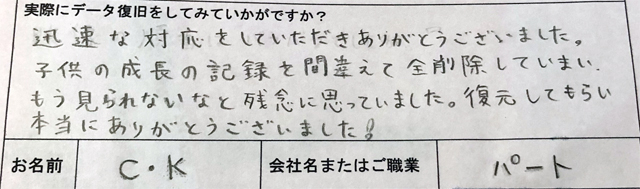 実際にデータ復旧をしてみていかがですか？
迅速な対応をしていただきありがとうございました。
子供の成長の記録を間違えて全削除していまい、
もう見られないなと残念に思っていました。復元してもらい
本当にありがとうございました！
お名前 C・K 会社名またはご職業 パート